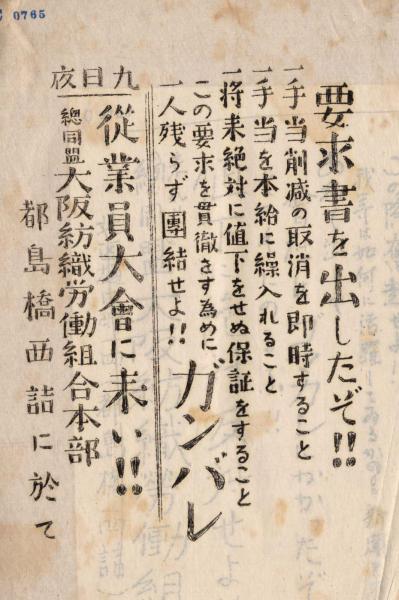 0765
要求書を出したぞ!!
一手当削減の取消を即時すること
一手当を本給に繰入れること
一将来絶対に値下をせぬ保証をすること
この要求を貫徹さす為めに
一人残らず團結せよ!!
ガンバレ
九日夜
従業員大會に来い!!
総同盟大阪紡織労働組合本部
都島橋西詰に於て